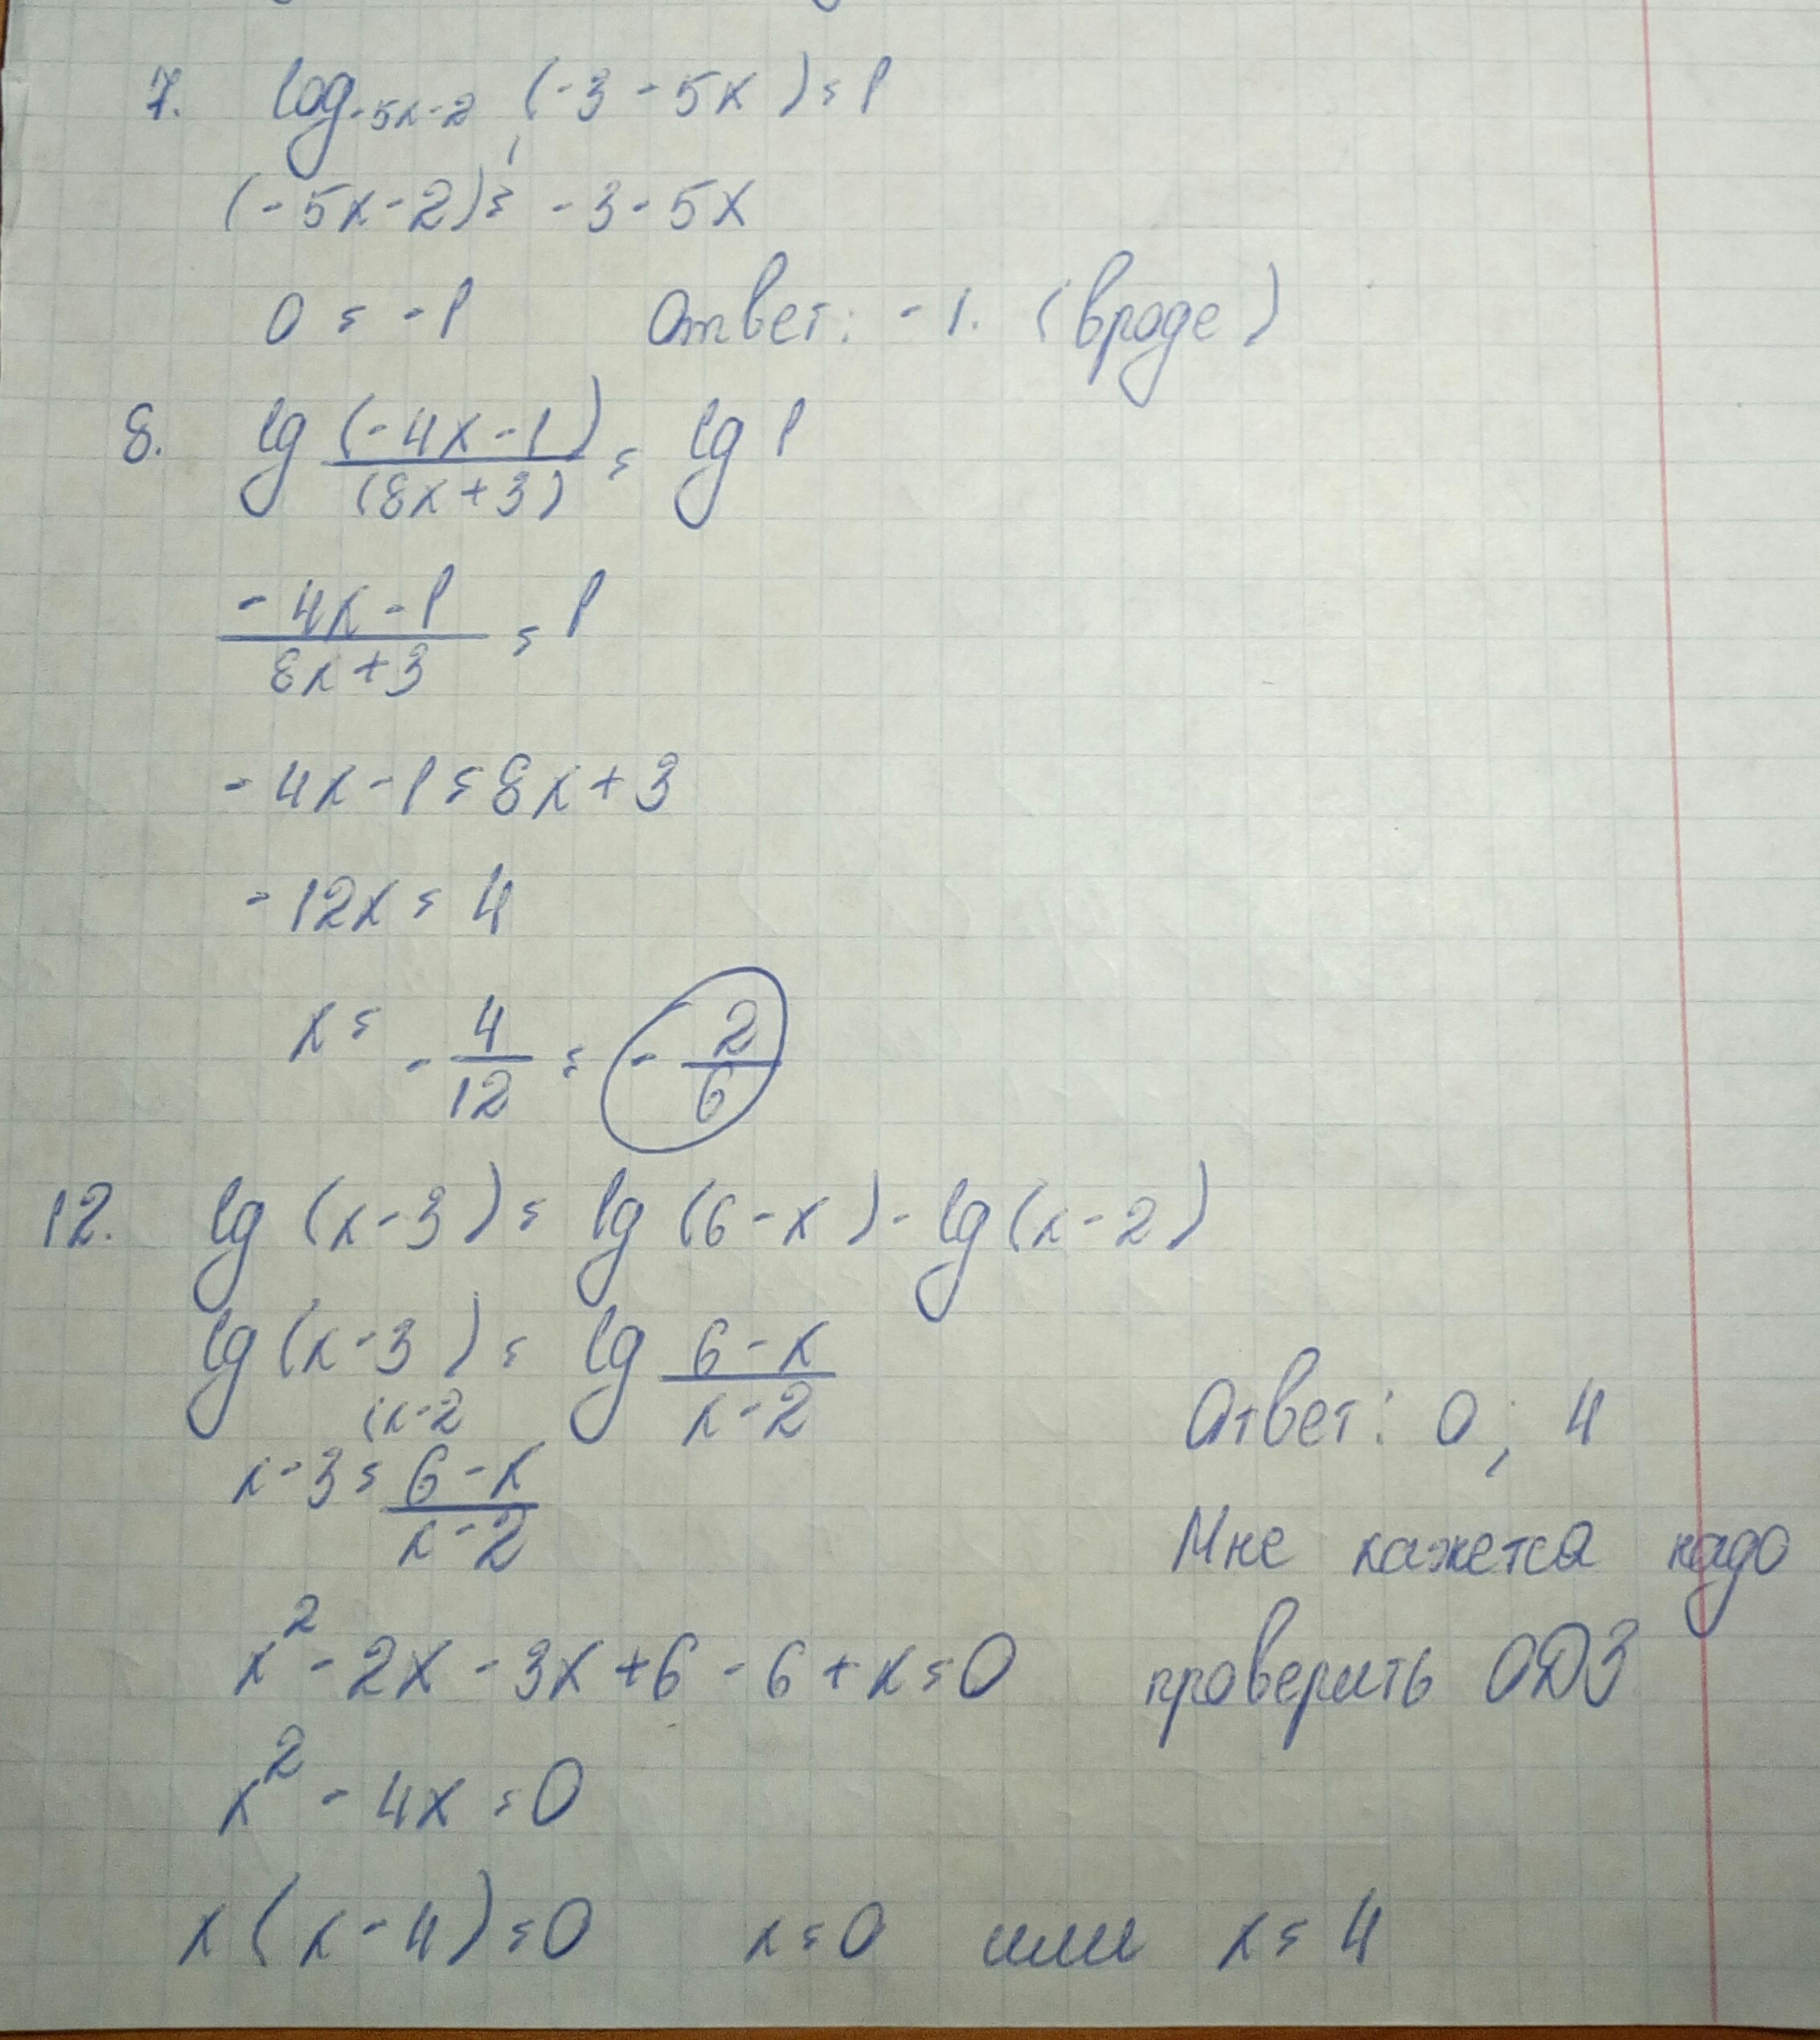 7. log₋₅ₓ₋₂ (-3-5x) = 1
(-5x-2)¹ = -3-5x
0 = -1 Ответ: -1. (вроде)
8. lg (-4x-1)/(8x+3) = lg 1
(-4x-1)/(8x+3) = 1
-4x-1=8x+3
-12x = 4
x = -4/12 = -2/6
12. lg (x-3) = lg (6-x) - lg (x-2)
lg (x-3) = lg (6-x)/(x-2)
(x-2
x-3 = (6-x)/(x-2)
Ответ: 0; 4
Мне кажется надо
проверить ОДЗ
x²-2x-3x+6-6+x=0
x²-4x=0
x(x-4)=0 x=0 или x=4